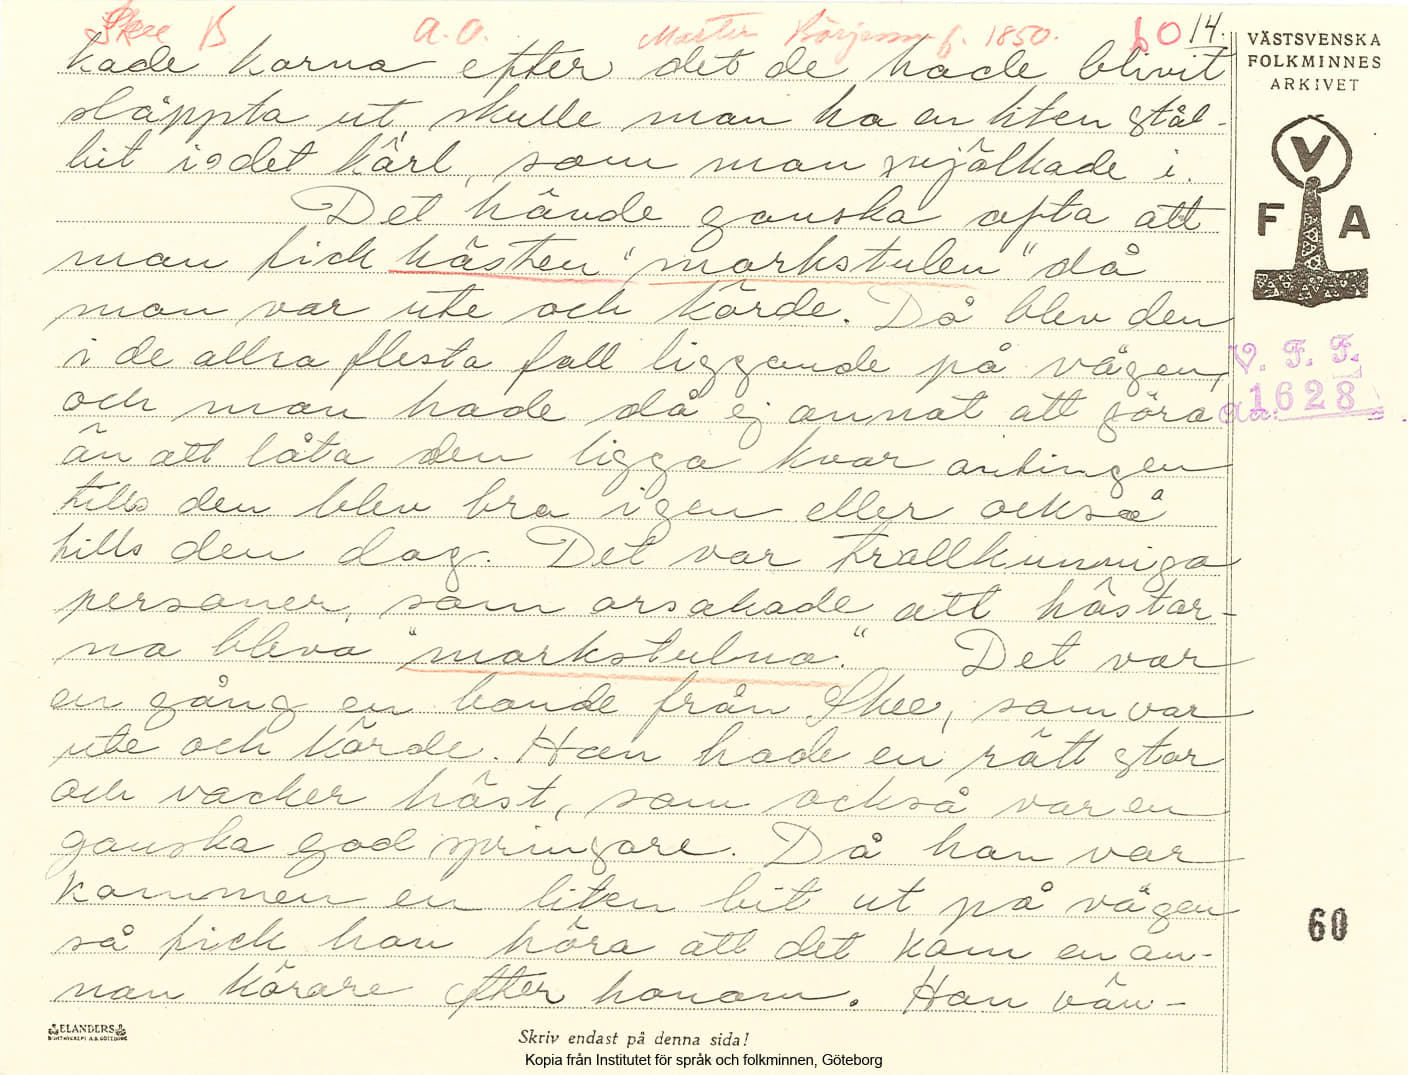 Skee B a. o. Martin Börjesson f. 1850. 60 14.
VÄSTSVENSKA
FOLKMINNES
ARKIVET
V
F A
V. F. F.
1628
60
kade korna efter det de hade blivit
släppta ut, skulle man ha en liten stål-
bit i det kärl, som man mjölkade i.
Det hände ganska ofta att
man fick hästen "markstulen" då
man var ute och körde. Då blev den
i de allra flesta fall liggande på vägen,
och man hade då ej annat att göra
än att låta den ligga kvar antingen
tills den blev bra igen eller också
tills den dog. Det var trollkunniga
personer, som orsakade att hästar-
na bleva "markstulna." Det var
en gång en bonde från Skee, som var
ute och körde. Han hade en rätt stor
och vacker häst, som också var en
ganska god springare. Då han var
kommen en liten bit ut på vägen
så fick han höra att det kom en an-
nan körare efter honom. Han vän-
ELANDERS
Skriv endast på denna sida!
Kopia från Institutet för språk och folkminnen, Göteborg